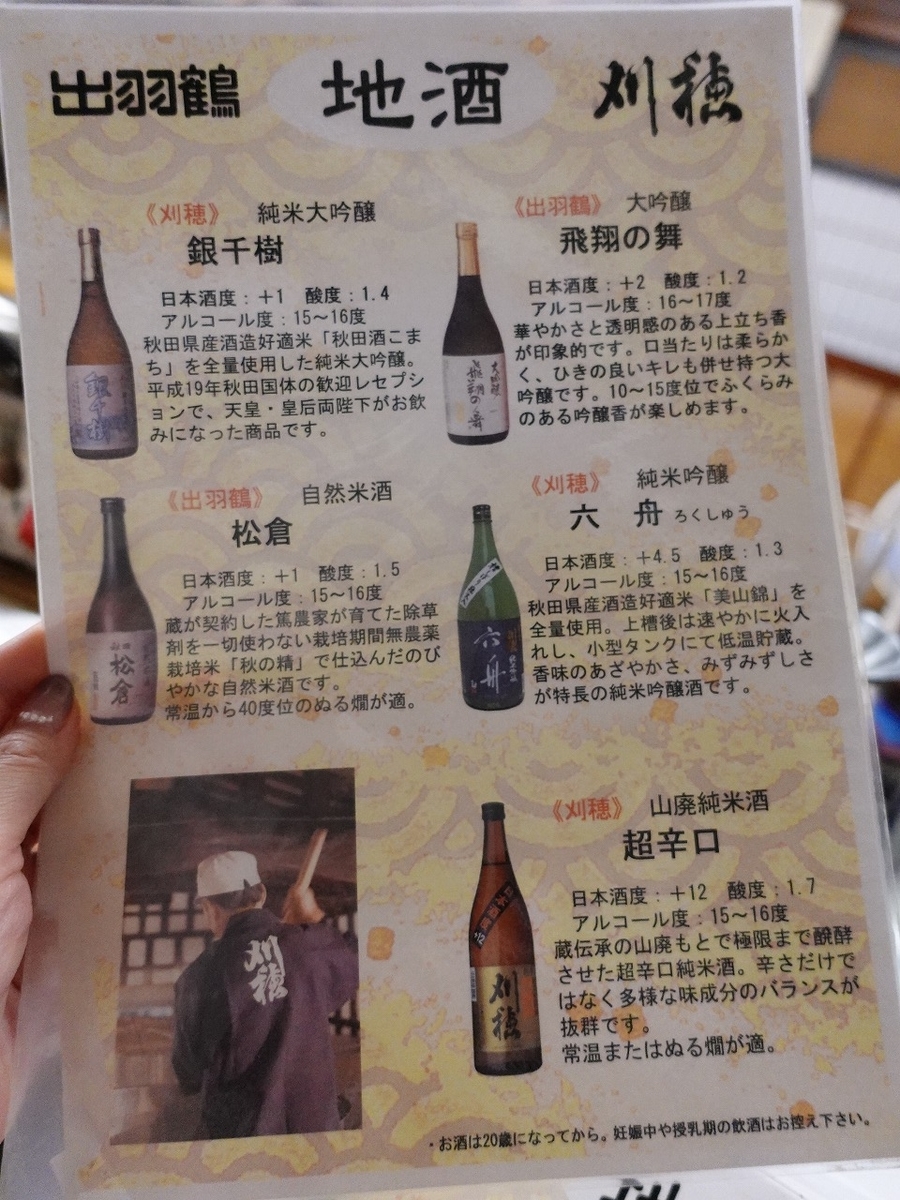 出羽鶴 地酒 刈穂
《刈穂》 純米大吟醸
銀千樹
日本酒度:+1 酸度:1.4
アルコール度:15〜16度
秋田県産酒造好適米「秋田酒こま
ち」を全量使用した純米大吟醸。
平成19年秋田国体の歓迎レセプシ
ョンで、天皇・皇后両陛下がお飲
みになった商品です。
《出羽鶴》 大吟醸
飛翔の舞
日本酒度:+2 酸度:1.2
アルコール度:16〜17度
華やかさと透明感のある上立ち香
が印象的です。口当たりは柔らか
く、ひきの良いキレも併せ持つ大
吟醸です。10〜15度位でふくらみ
のある吟醸香が楽しめます。
銀千樹
大吟醸
飛翔の舞
《出羽鶴》 自然米酒
松倉
日本酒度:+1 酸度:1.5
アルコール度:15〜16度
蔵が契約した篤農家が育てた除草
剤を一切使わない栽培期間無農薬
栽培米「秋の精」で仕込んだのび
やかな自然米酒です。
常温から40度位のぬる燗が適。
松倉
《刈穂》 純米吟醸
六 舟 ろくしゅう
日本酒度:+4.5 酸度:1.3
アルコール度:15〜16度
秋田県産酒造好適米「美山錦」を
全量使用。上槽後は速やかに火入
れし、小型タンクにて低温貯蔵。
香味のあざやかさ、みずみずしさ
が特長の純米吟醸酒です。
六舟
刈穂
《刈穂》 山廃純米酒
超辛口
日本酒度:+12 酸度:1.7
アルコール度:15〜16度
蔵伝承の山廃もとで極限まで醗酵
させた超辛口純米酒。辛さだけで
はなく多様な味成分のバランスが
抜群です。
常温またはぬる燗が適。
刈穂
・お酒は20歳になってから。妊娠中や授乳期の飲酒はお控え下さい。